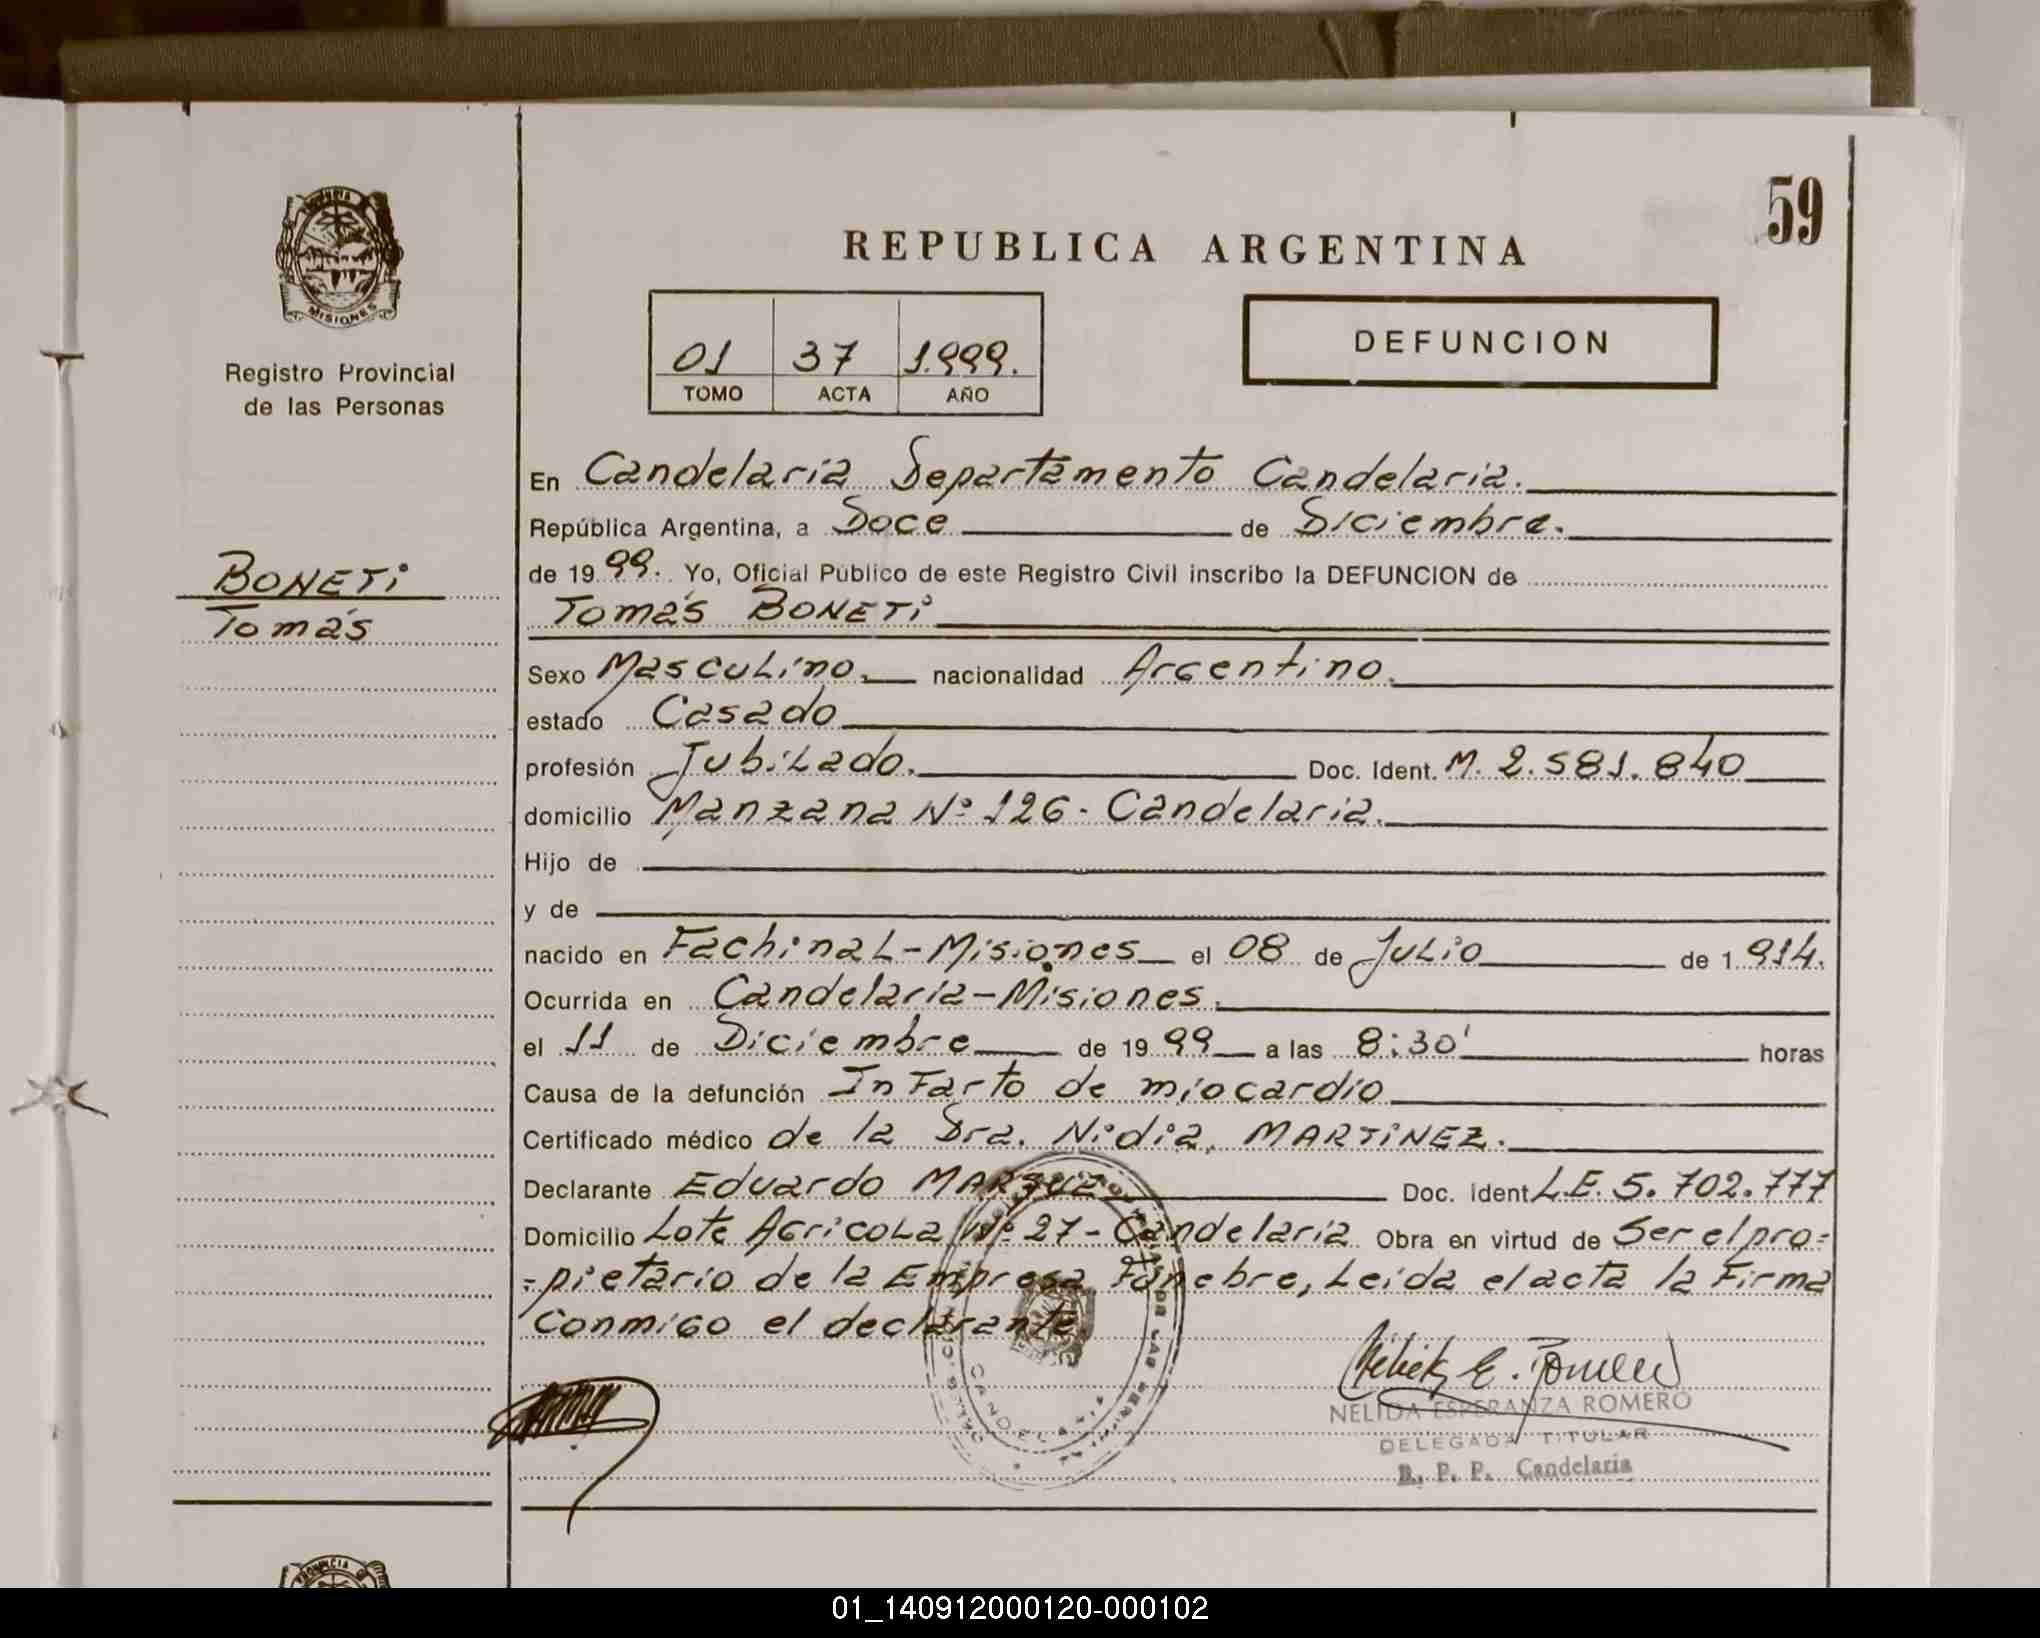 59
MISIONES
REPUBLICA ARGENTINA
DEFUNCION
01 37 1.999.
TOMO ACTA AÑO
Registro Provincial
de las Personas
BONETi
Tomás
En Candelaria Departamento Candelaria.
República Argentina, a Doce de Diciembre.
de 1999. Yo, Oficial Público de este Registro Civil inscribo la DEFUNCION de
Tomás BONETi
Sexo Masculino. nacionalidad Argentino.
estado Casado
profesión Jubilado. Doc. Ident. M. 2.581.840
domicilio Manzana Nº 126- Candelaria.
Hijo de
y de
nacido en Fachinal-Misiones el 08 de Julio de 1914.
Ocurrida en Candelaria-Misiones.
el 11 de Diciembre de 1999 a las 8:30' horas
Causa de la defunción Infarto de miocardio
Certificado médico de la Dra. Nidia MARTiNEZ.
Declarante Eduardo Doc. ident L.E. 5.702.777
Domicilio Lote Agricola Nº 27- Candelaria Obra en virtud de Ser el pro=
=pietario de la Empresa Fúnebre, Leida el acta la Firma
Conmigo el declarante.
CANDELARIA
NELIDA ESPERANZA ROMERO
DELEGADA TITULAR
R. P. P. Candelaria
01_140912000120-000102